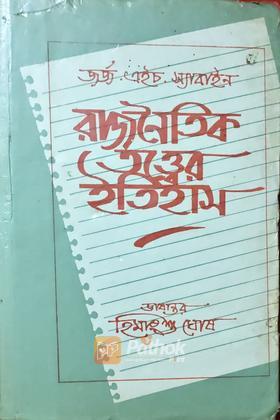 জর্জ এইচ. স্যাবাইন
রাজনৈতিক
তত্ত্বের
ইতিহাস
ভাষান্তর
হিমাংশু ঘোষ
Pathok